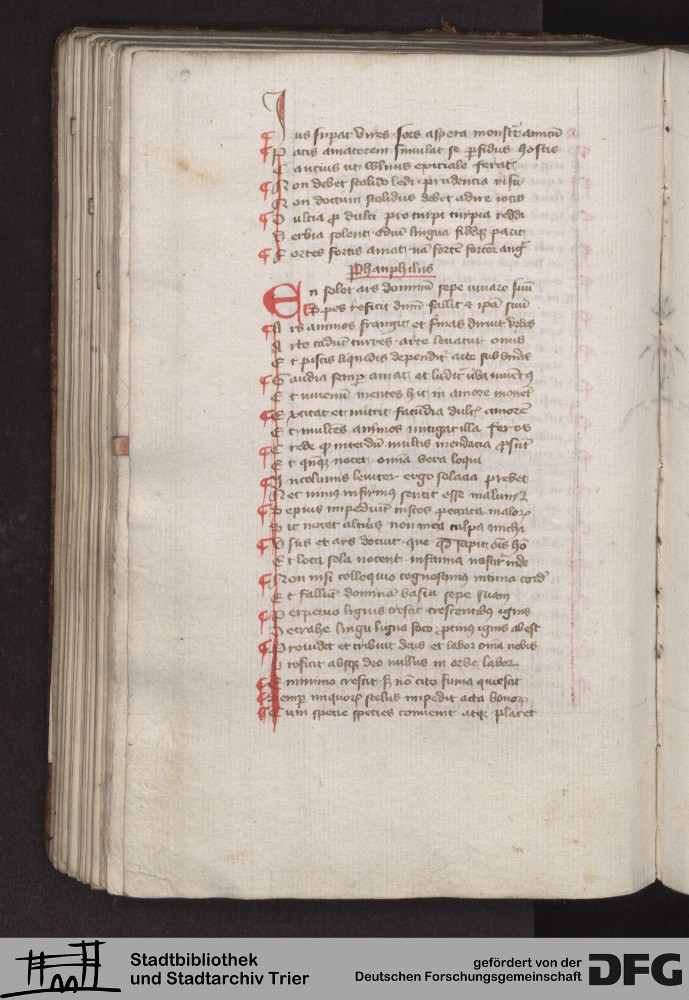 Ius supat vires sors aspera monstrat amicum
Pacis amatorem simulat se perfidus hostis
Caucius ut vulnus exiciale ferat
Non debet stolido ledi prudencia risu
Non doctum stolidus debet adire iocis
Dulcia pro dulci pro turpi turpia reddi
Verbia solent odium lingua fidesque parit
Fortes fortis amat nam fortem fortior angit
Phanphilus
En solet ars dominum sepe iuvare suum
Spes reficit dominum fallit et ipsa suum
Ars animos frangit et firmas diruit urbes
Arte cadunt turres arte levatur onus
Et piscis liquidis deprenditur arte sub undis
Gaudia semper amat et ludicra verba iuventus
Et iuvenum mentes hiis in amore monet
Excitat et nutrit facundia dulcis amorem
Et mulcens animos mitigat illa feros
Crede quod interdum multis mendacia prosunt
Et quandoque nocet omnia vera loqui
Incolumis leviter ergo solacia prebet
Nec minus infirmus sentit esse malum
Sepius impediunt iustos peccata malorum
Sic nocet alterius non mea culpa michi
Usus et ars docuit que quod sapit omnis homo
Et loca sola nocent infamia nascitur inde
Non nisi colloquio cognoscimus intima cordis
Et fallunt dominam basia sepe suam
Perpetuo lignis crescit crescentibus ignis
Detrahe lingu ligna foco protinus ignis abest
Providet et tribuit deus et labor omnia nobis
Proficit absque deo nullus in orbe labor
E minimo crescit sed non cito fama quiescit
Semper iniquorum scelus impedit acta bonorum
Cum specie species convenit atque placet
Stadtbibliothek
und Stadtarchiv Trier
gefördert von der
Deutschen Forschungsgemeinschaft
DFG